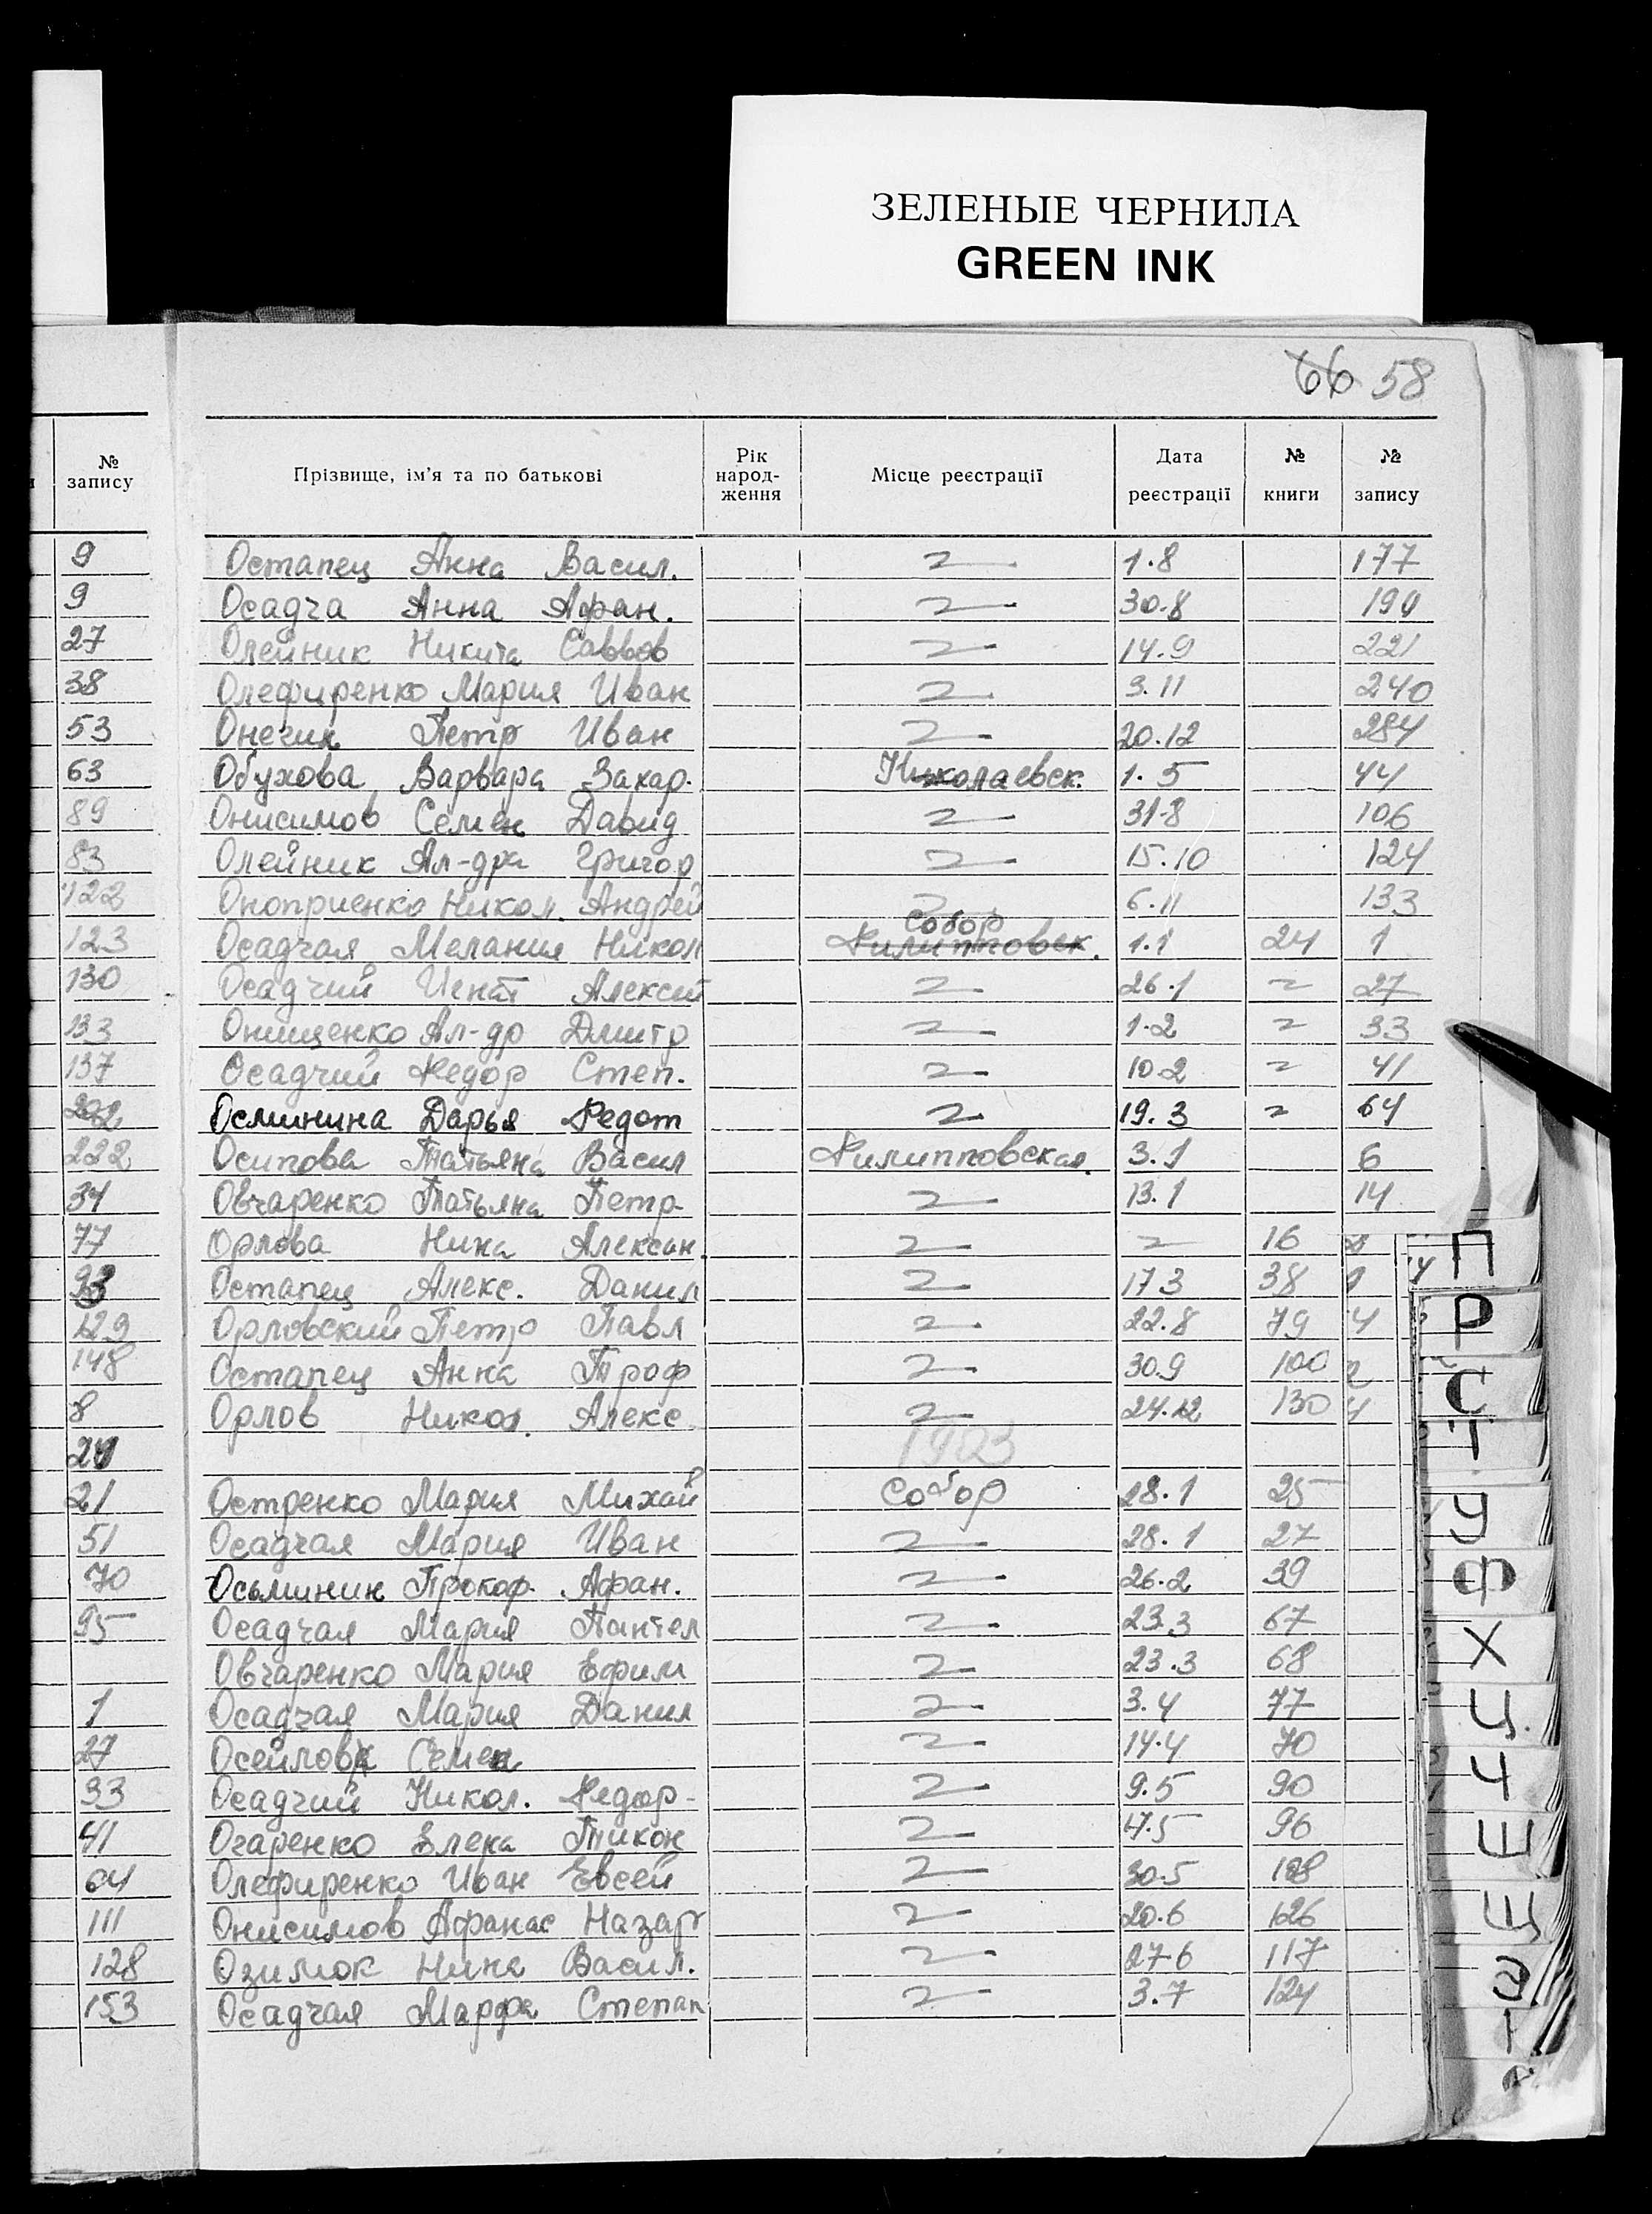 ЗЕЛЕНЫЕ ЧЕРНИЛА
GREEN INK
66 58
№ запису
Прізвище, ім'я та по батькові Рік народ-ження Місце реєстрації Дата реєстрації № книги № запису
9 Остапец Анна Васил. 〃 1.8 177
9 Осадча Анна Афан. 〃 30.8 190
27 Олейник Никита Саввов 〃 14.9 221
38 Олефиренко Мария Иван 〃 3.11 240
53 Петр Иван 〃 20.12 284
63 Обухова Варвара Захар. Николаевск. 1.5 44
89 Онисимов Семен Давид 〃 31.8 106
83 Олейник Ал-дра Григор 〃 15.10 124
122 Оноприенко Никол. Андрей 〃 6.11 133
Собор
123 Осадчая Мелания Никол Филипповск. 1.1 24 1
130 Осадчий Игнат Алексей 〃 26.1 〃 27
133 Онищенко Ал-др Дмитр 〃 1.2 〃 33
137 Осадчий Федор Степ. 〃 10.2 〃 41
202 Осминина Дарья Федот 〃 19.3 〃 64
222 Осипова Татьяна Васил Филипповская. 3.1 6
34 Овчаренко Татьяна Петр. 〃 13.1 14
77 Орлова Нина Алексан. 〃 〃 16
93 Остапец Алекс. Данил 〃 17.3 38
129 Орловский Петр Павл 〃 22.8 79
148 Остапец Анна Троф 〃 30.9 100
8 Орлов Никол. Алекс 〃 24.12 130
1923
21 Остренко Мария Михай Собор 28.1 25
51 Осадчая Мария Иван 〃 28.1 27
70 Осьминин Прокоф. Афан. 〃 26.2 39
95 Осадчая Мария Пантел 〃 23.3 67
Овчаренко Мария Ефим 〃 23.3 68
1 Осадчая Мария Данил 〃 3.4 77
27 Семен 〃 14.4 70
33 Осадчий Никол. Федор. 〃 9.5 90
41 Огаренко Елена Тихон 〃 17.5 96
64 Олефиренко Иван Евсей 〃 30.5
111 Онисимов Афанас Назар 〃 20.6 126
128 Озимок Нина Васил. 〃 27.6 117
153 Осадчая Марфа Степан 〃 3.7 124
П
Р
С
Т
У
Ф
Х
Ц.
Ч
Ш
Щ